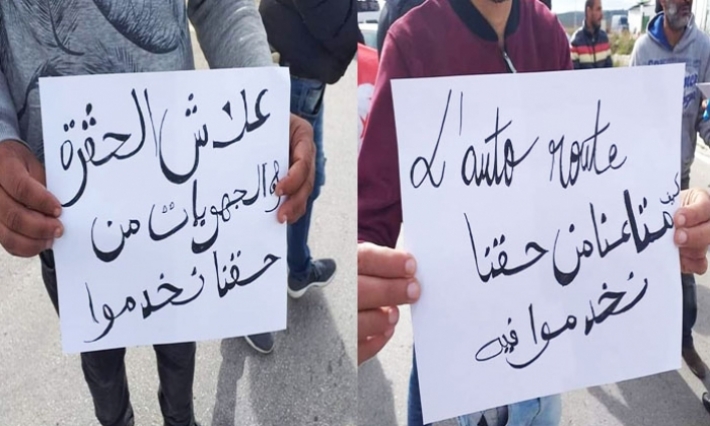 علاش الحڨرة
و الجهويات من
حقنا نخدموا
L'auto route
كيف
متاعنا من حقنا
نخدموا فيه